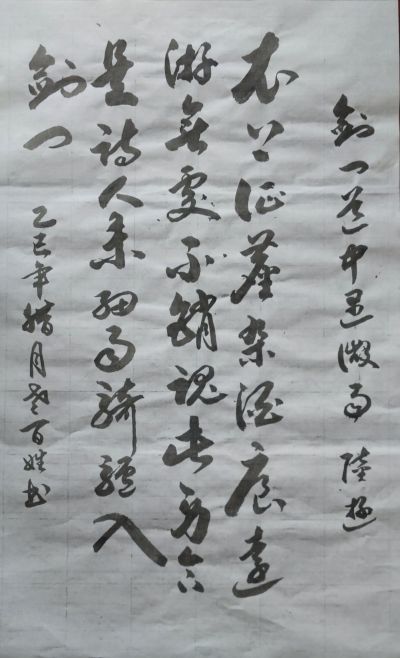 劍门道中遇微雨 陸游
衣上征塵杂酒痕遠
游無處不銷魂此身合
是詩人未細雨騎驢入
劍门 乙巳年腊月老百姓书